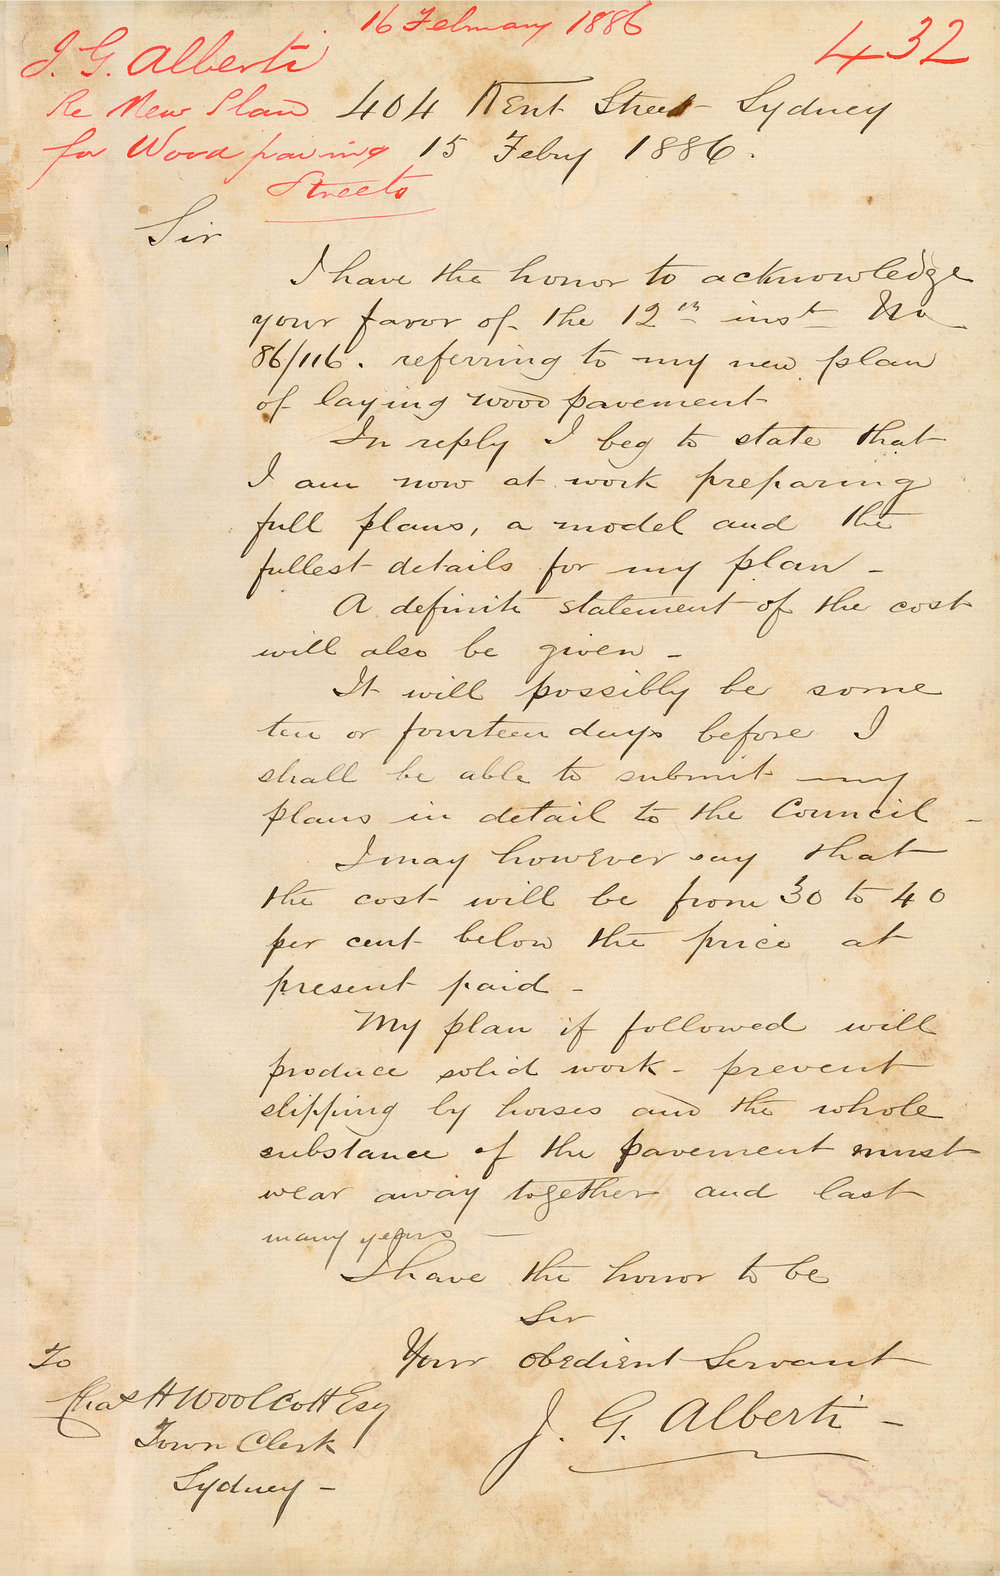 16 February 1886
432
J. G. Alberti
Re New Plan
for Wood paving
Streets
404 Kent Street Sydney
15 Feby 1886.
Sir
I have the honor to acknowledge
your favor of the 12th inst No
86/116. referring to my new plan
of laying wood pavement
In reply I beg to state that
I am now at work preparing
full plans, a model and the
fullest details for my plan -
A definite statement of the cost
will also be given -
It will possibly be some
ten or fourteen days before I
shall be able to submit my
plans in detail to the Council -
I may however say that
the cost will be from 30 to 40
per cent below the price at
present paid -
My plan if followed will
produce solid work - prevent
slipping by horses and the whole
substance of the pavement must
wear away together and last
many years -
I have the honor to be
Sir
Your obedient Servant
J. G. Alberti -
To
Chas H Woolcott Esq
Town Clerk
Sydney -